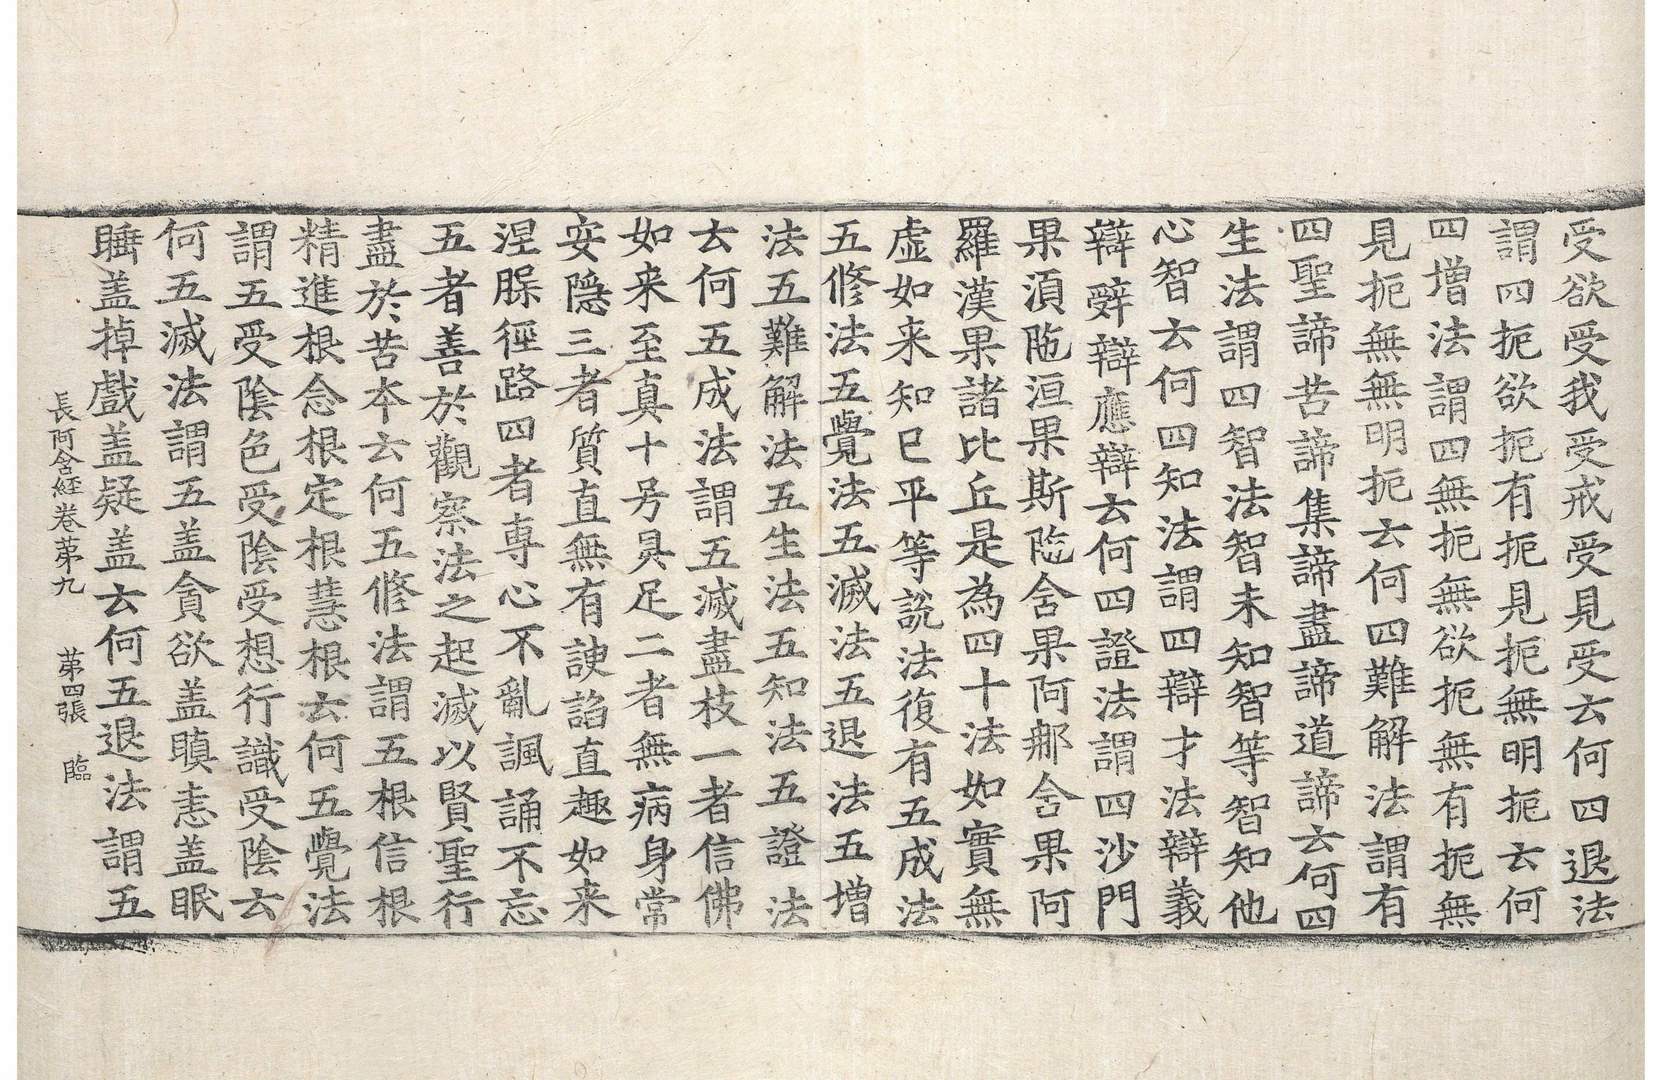 受欲受我受戒受見受云何四退法
謂四扼欲扼有扼見扼無明扼云何
四增法謂四無扼無欲扼無有扼無
見扼無無明扼云何四難解法謂有
四聖諦苦諦集諦盡諦道諦云何四
生法謂四智法智未知智等智知他
心智云何四知法謂四辯才法辯義
辯辤辯應辯云何四證法謂四沙門
果湏陁洹果斯陁含果阿郍含果阿
羅漢果諸比丘是為四十法如實無
虛如来知已平等說法復有五成法
五修法五覺法五滅法五退法五增
法五難解法五生法五知法五證法
云何五成法謂五滅盡枝一者信佛
如来至真十号具足二者無病身常
安隱三者質直無有諛諂直趣如来
涅槃徑路四者専心不亂諷誦不忘
五者善於觀察法之起滅以賢聖行
盡於苦夲云何五修法謂五根信根
精進根念根定根慧根云何五覺法
謂五受陰色受陰受想行識受陰云
何五滅法謂五盖貪欲盖瞋恚盖眠
睡盖掉戲盖疑盖云何五退法謂五
長阿含經卷苐九 苐四張 臨